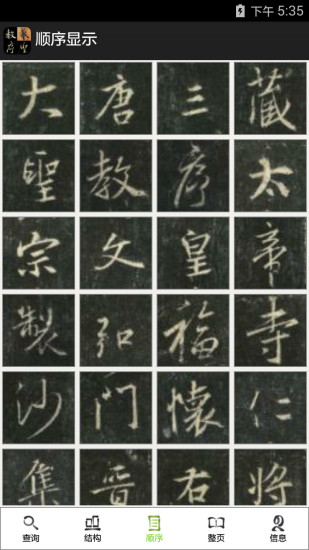 下午 5:35
教序 集聖
顺序显示
大唐三藏
聖教序太
宗文皇帝
製弘福寺
沙門懷仁
集晉右将
查询 结构 顺序 整页 信息